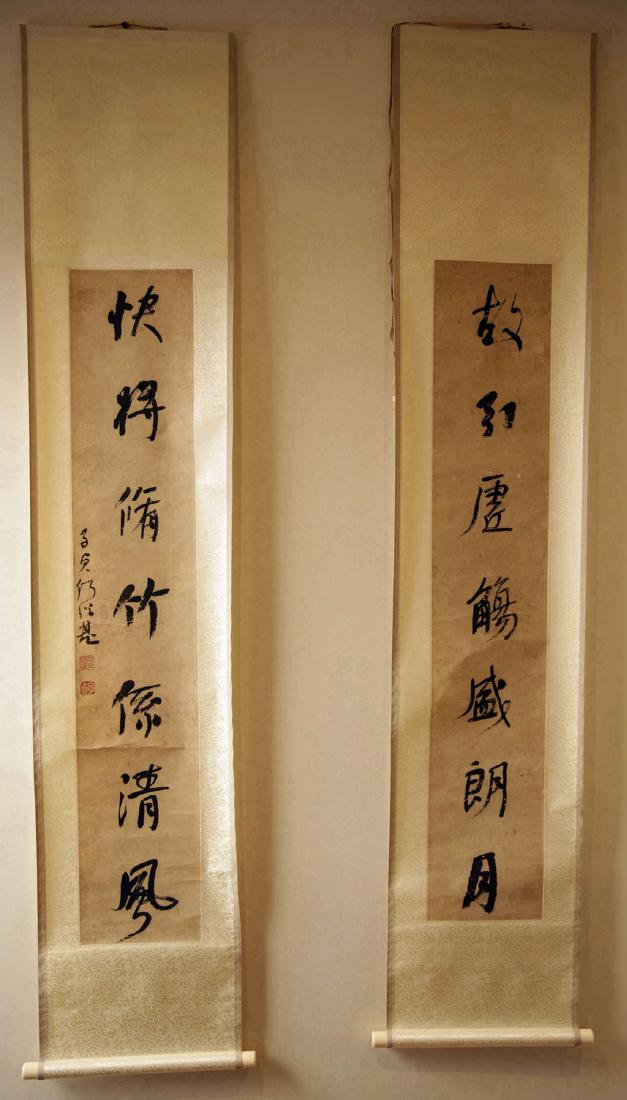 故引虛觴盛朗月
快將脩竹係清風
子貞何紹基